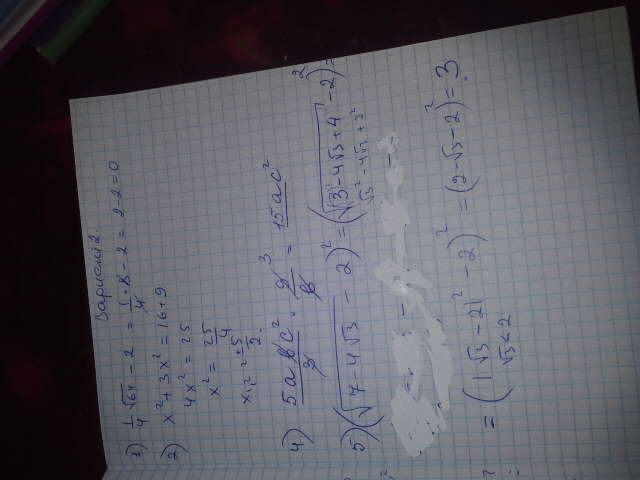 Вариант 2.
1) 1/4 √64 - 2 = 1/4 · 8 - 2 = 2-2=0
2) x² + 3x² = 16+9
4x² = 25
x² = 25/4
x₁,₂ = ±5/2.
4) 5abc²/3 · 9³/b = 15ac²
5) (√(7-4√3) - 2)² = (√((3)-4√3+4) - 2)² =
√3² - 4√3 + 2²
= (|√3 - 2|² - 2)² = (2-√3-2)² = 3
√3 < 2